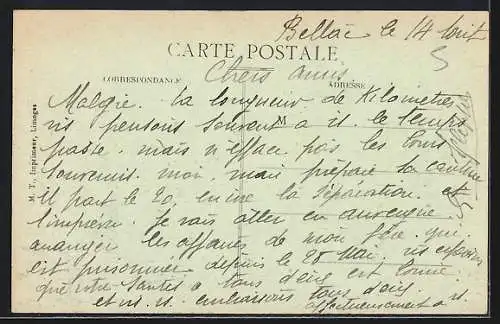 Bellac le 14 Août
CARTE POSTALE
Chers amis
CORRESPONDANCE
ADRESSE
Malgré la longueur de Kilomètres
ns pensons souvent a le temps
passe mais n'efface pas les bons
souvenirs moi mari prépare sa cantine
il part le 20, encore la séparation et
l'imprévu Je vais aller en auvergne
arranger les affaires de mon frère qui
est prisonnier depuis le 28 Mai, ns espérons
que votre santés a tous deux est bonne
et ns embrassons tous deux
affectueusement
M
M. T., Imprimeur, Limoges